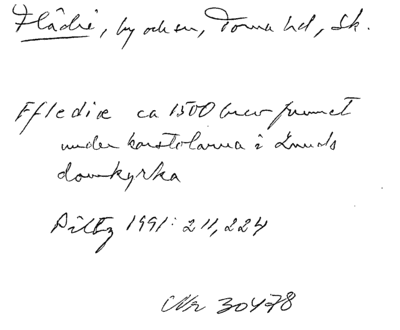 Flädie, by o sn, Torna hd, Sk.
Fflediæ ca 1500 brev funnet
under korstolarna i Lunds
domkyrka
Piltz 1991: 211, 224
Nr 30478